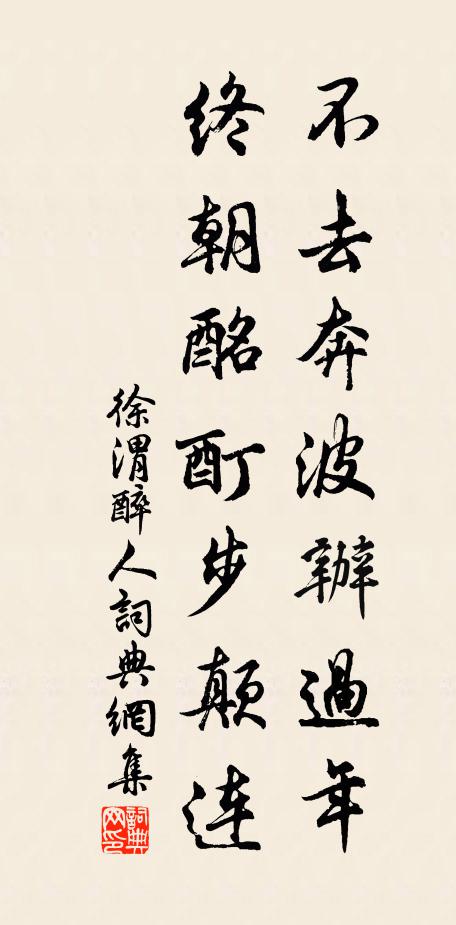 不去奔波辦過年
終朝酩酊步顛連
徐渭醉人詞典網集
詞典網印